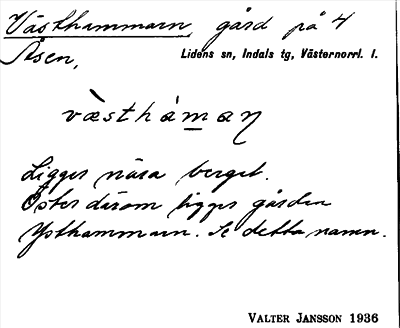 Västhammarn, gård på 4
Åsen,
Lidens sn, Indals tg, Västernorrl. l.
væ̀sthámaṉ
Ligger nära berget.
Öster därom ligger gården
Østhammarn. Se detta namn.
VALTER JANSSON 1936